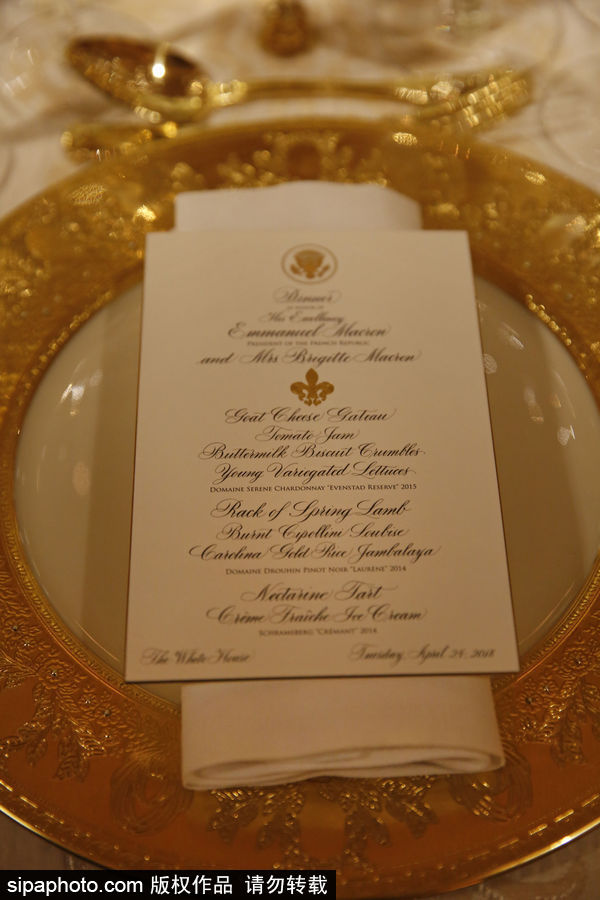 Dinner
in honor of
His Excellency
Emmanuel Macron
President of the French Republic
and Mrs Brigitte Macron
Goat Cheese Gateau
Tomato Jam
Buttermilk Biscuit Crumbles
Young Variegated Lettuces
Domaine Serene Chardonnay "Evenstad Reserve" 2015
Rack of Spring Lamb
Burnt Cipollini Soubise
Carolina Gold Rice Jambalaya
Domaine Drouhin Pinot Noir "Laurène" 2014
Nectarine Tart
Crème Fraîche Ice Cream
Schramsberg "Crémant" 2014
The White House Tuesday, April 24, 2018
sipaphoto.com 版权作品 请勿转载